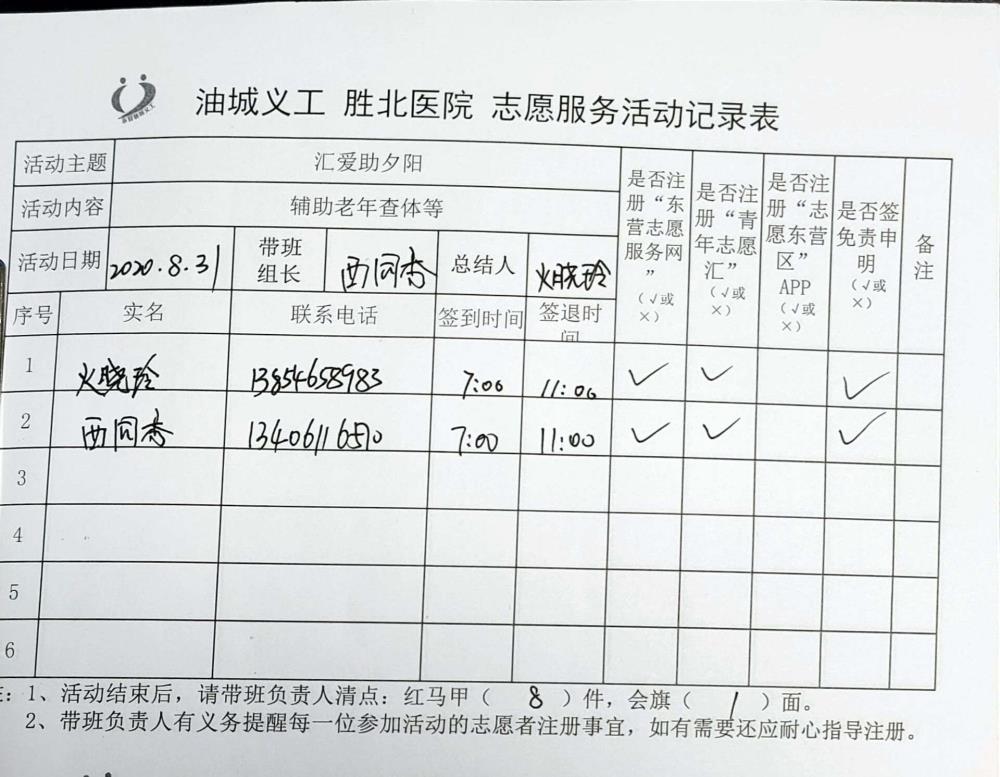 油城义工 胜北医院 志愿服务活动记录表
活动主题 汇爱助夕阳
活动内容 辅助老年查体等
活动日期 2020.8.31 带班组长 西同香 总结人 火晓玲
序号 实名 联系电话 签到时间 签退时间 是否注册“东营志愿服务网”（√或×） 是否注册“青年志愿汇”（√或×） 是否注册“志愿东营区”APP（√或×） 是否签免责申明（√或×） 备注
1 火晓玲 13854658983 7:00 11:00 √ √ √
2 西同香 13406116510 7:00 11:00 √ √ √
3
4
5
6
：1、活动结束后，请带班负责人清点：红马甲（ 8 ）件，会旗（ 1 ）面。
2、带班负责人有义务提醒每一位参加活动的志愿者注册事宜，如有需要还应耐心指导注册。